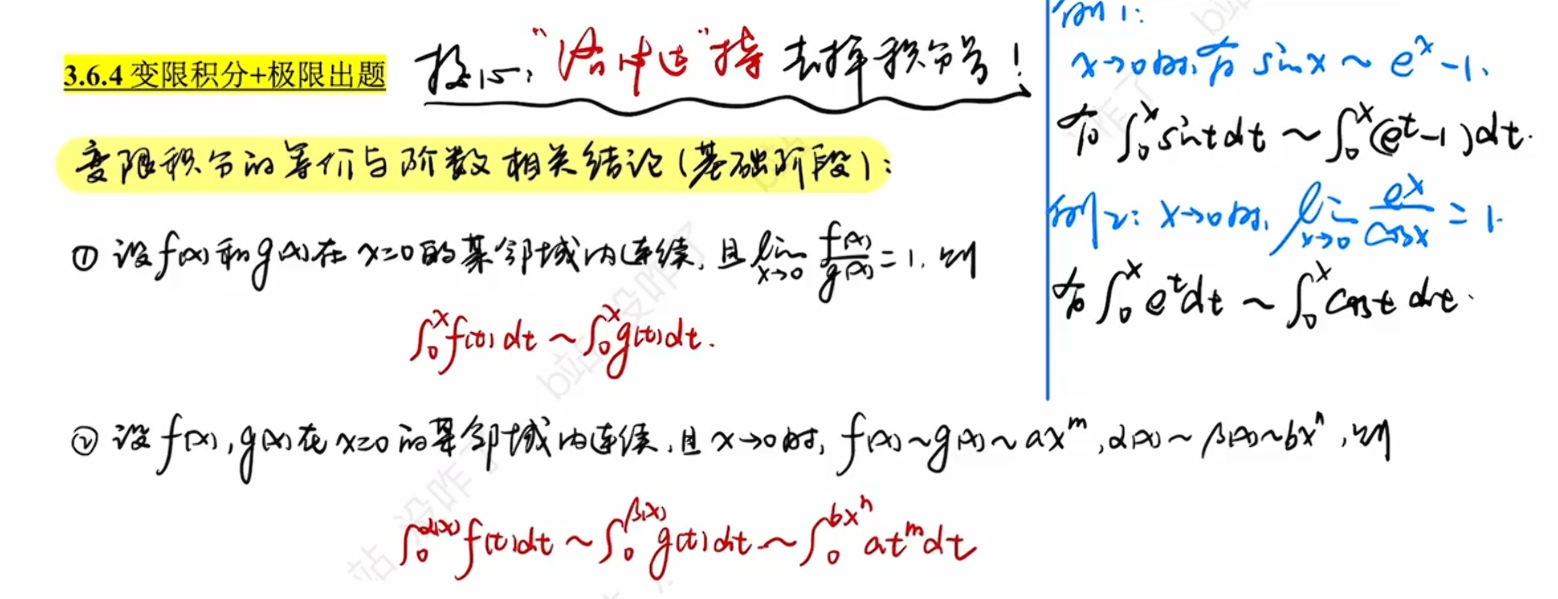 3.6.4 变限积分+极限出题
核心:“洛中连”持 去掉积分号!
变限积分的等价与阶数相关结论(基础阶段):
① 设f(x)和g(x)在x=0的某邻域内连续,且lim_{x→0} f(x)/g(x)=1,则
∫₀ˣf(t)dt~∫₀ˣg(t)dt.
② 设f(x),g(x)在x=0的某邻域内连续,且x→0时,f(x)~g(x)~axᵐ,α(x)~β(x)~bxⁿ,则
∫₀^{α(x)}f(t)dt~∫₀^{β(x)}g(t)dt~∫₀^{bxⁿ}atᵐdt
例1:
x→0时,有 sinx~eˣ-1.
有∫₀ˣsintdt~∫₀ˣ(eᵗ-1)dt.
例2:x→0时,lim_{x→0} eˣ/cosx=1.
有∫₀ˣeᵗdt~∫₀ˣcost dt.
b站 没咋了